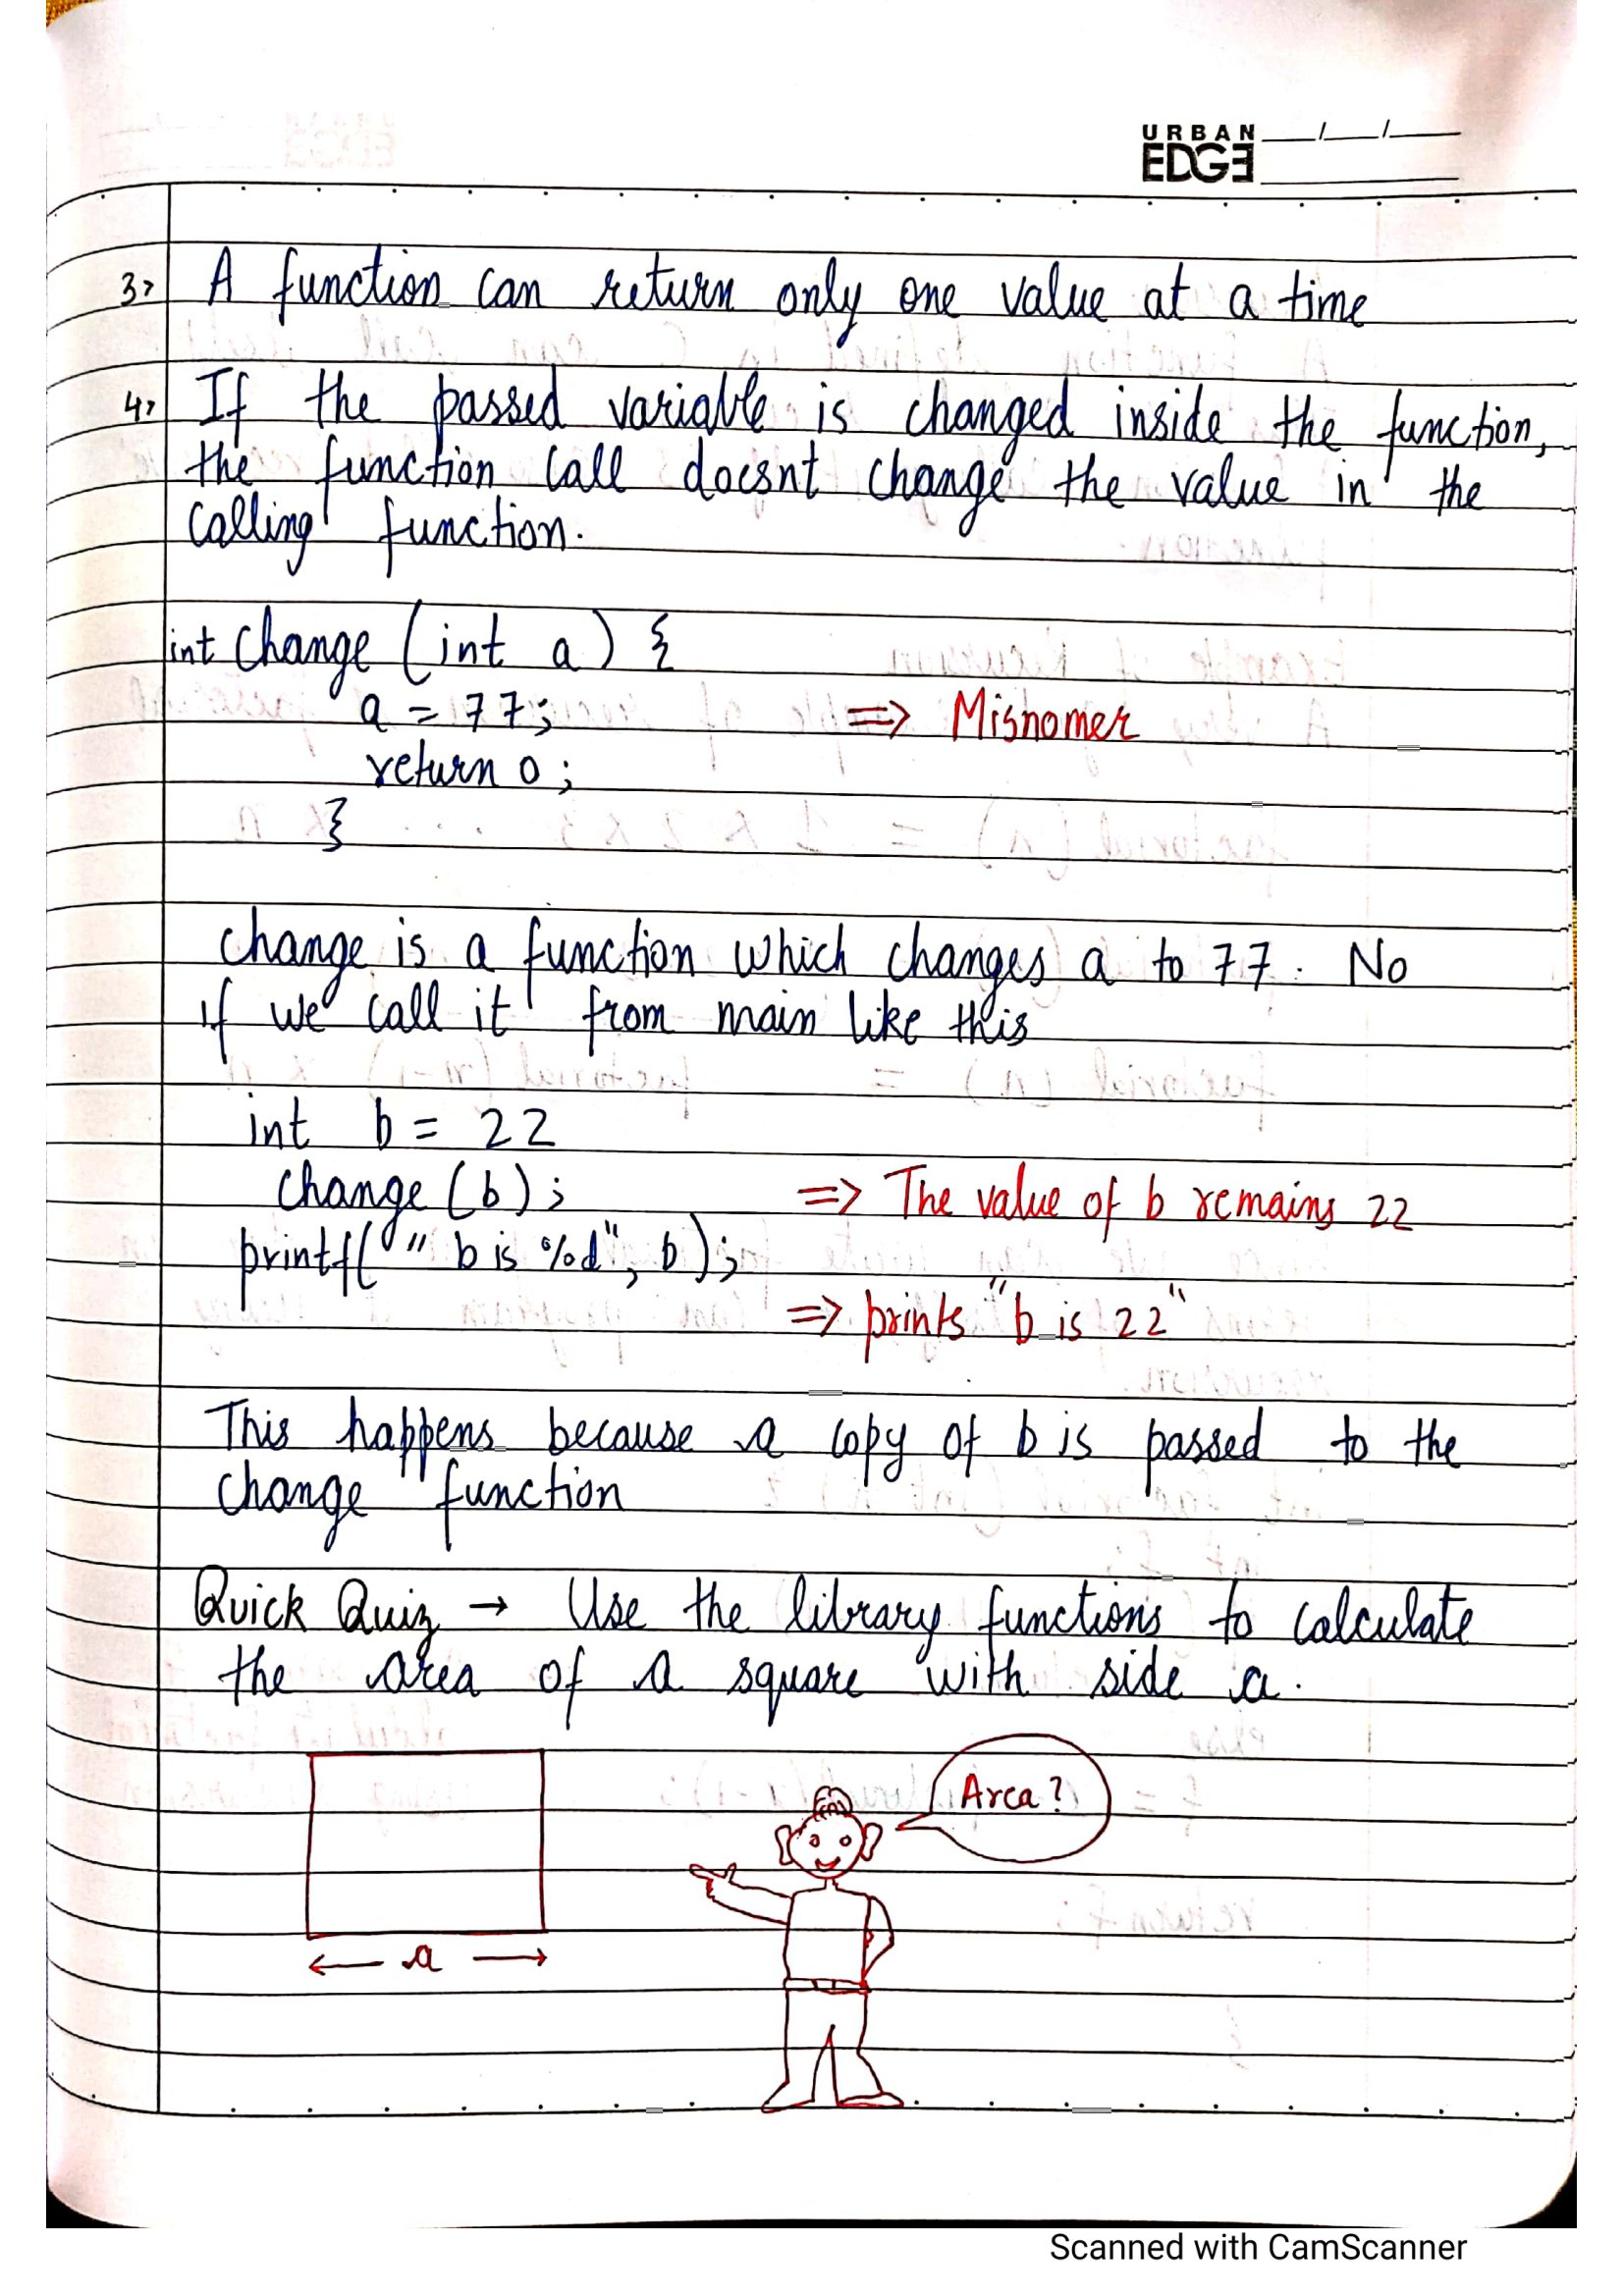 URBAN
EDGE
3> A function can return only one value at a time
4> If the passed variable is changed inside the function,
the function call doesnt change the value in the
calling function.
int change (int a) {
a = 77; => Misnomer
return 0;
}
change is a function which changes a to 77. No
if we call it from main like this
int b = 22
change (b); => The value of b remains 22
printf(" b is %d", b);
=> prints "b is 22"
This happens because a copy of b is passed to the
change function
Quick Quiz → Use the library functions to calculate
the area of a square with side a.
Area?
← a →
Scanned with CamScanner